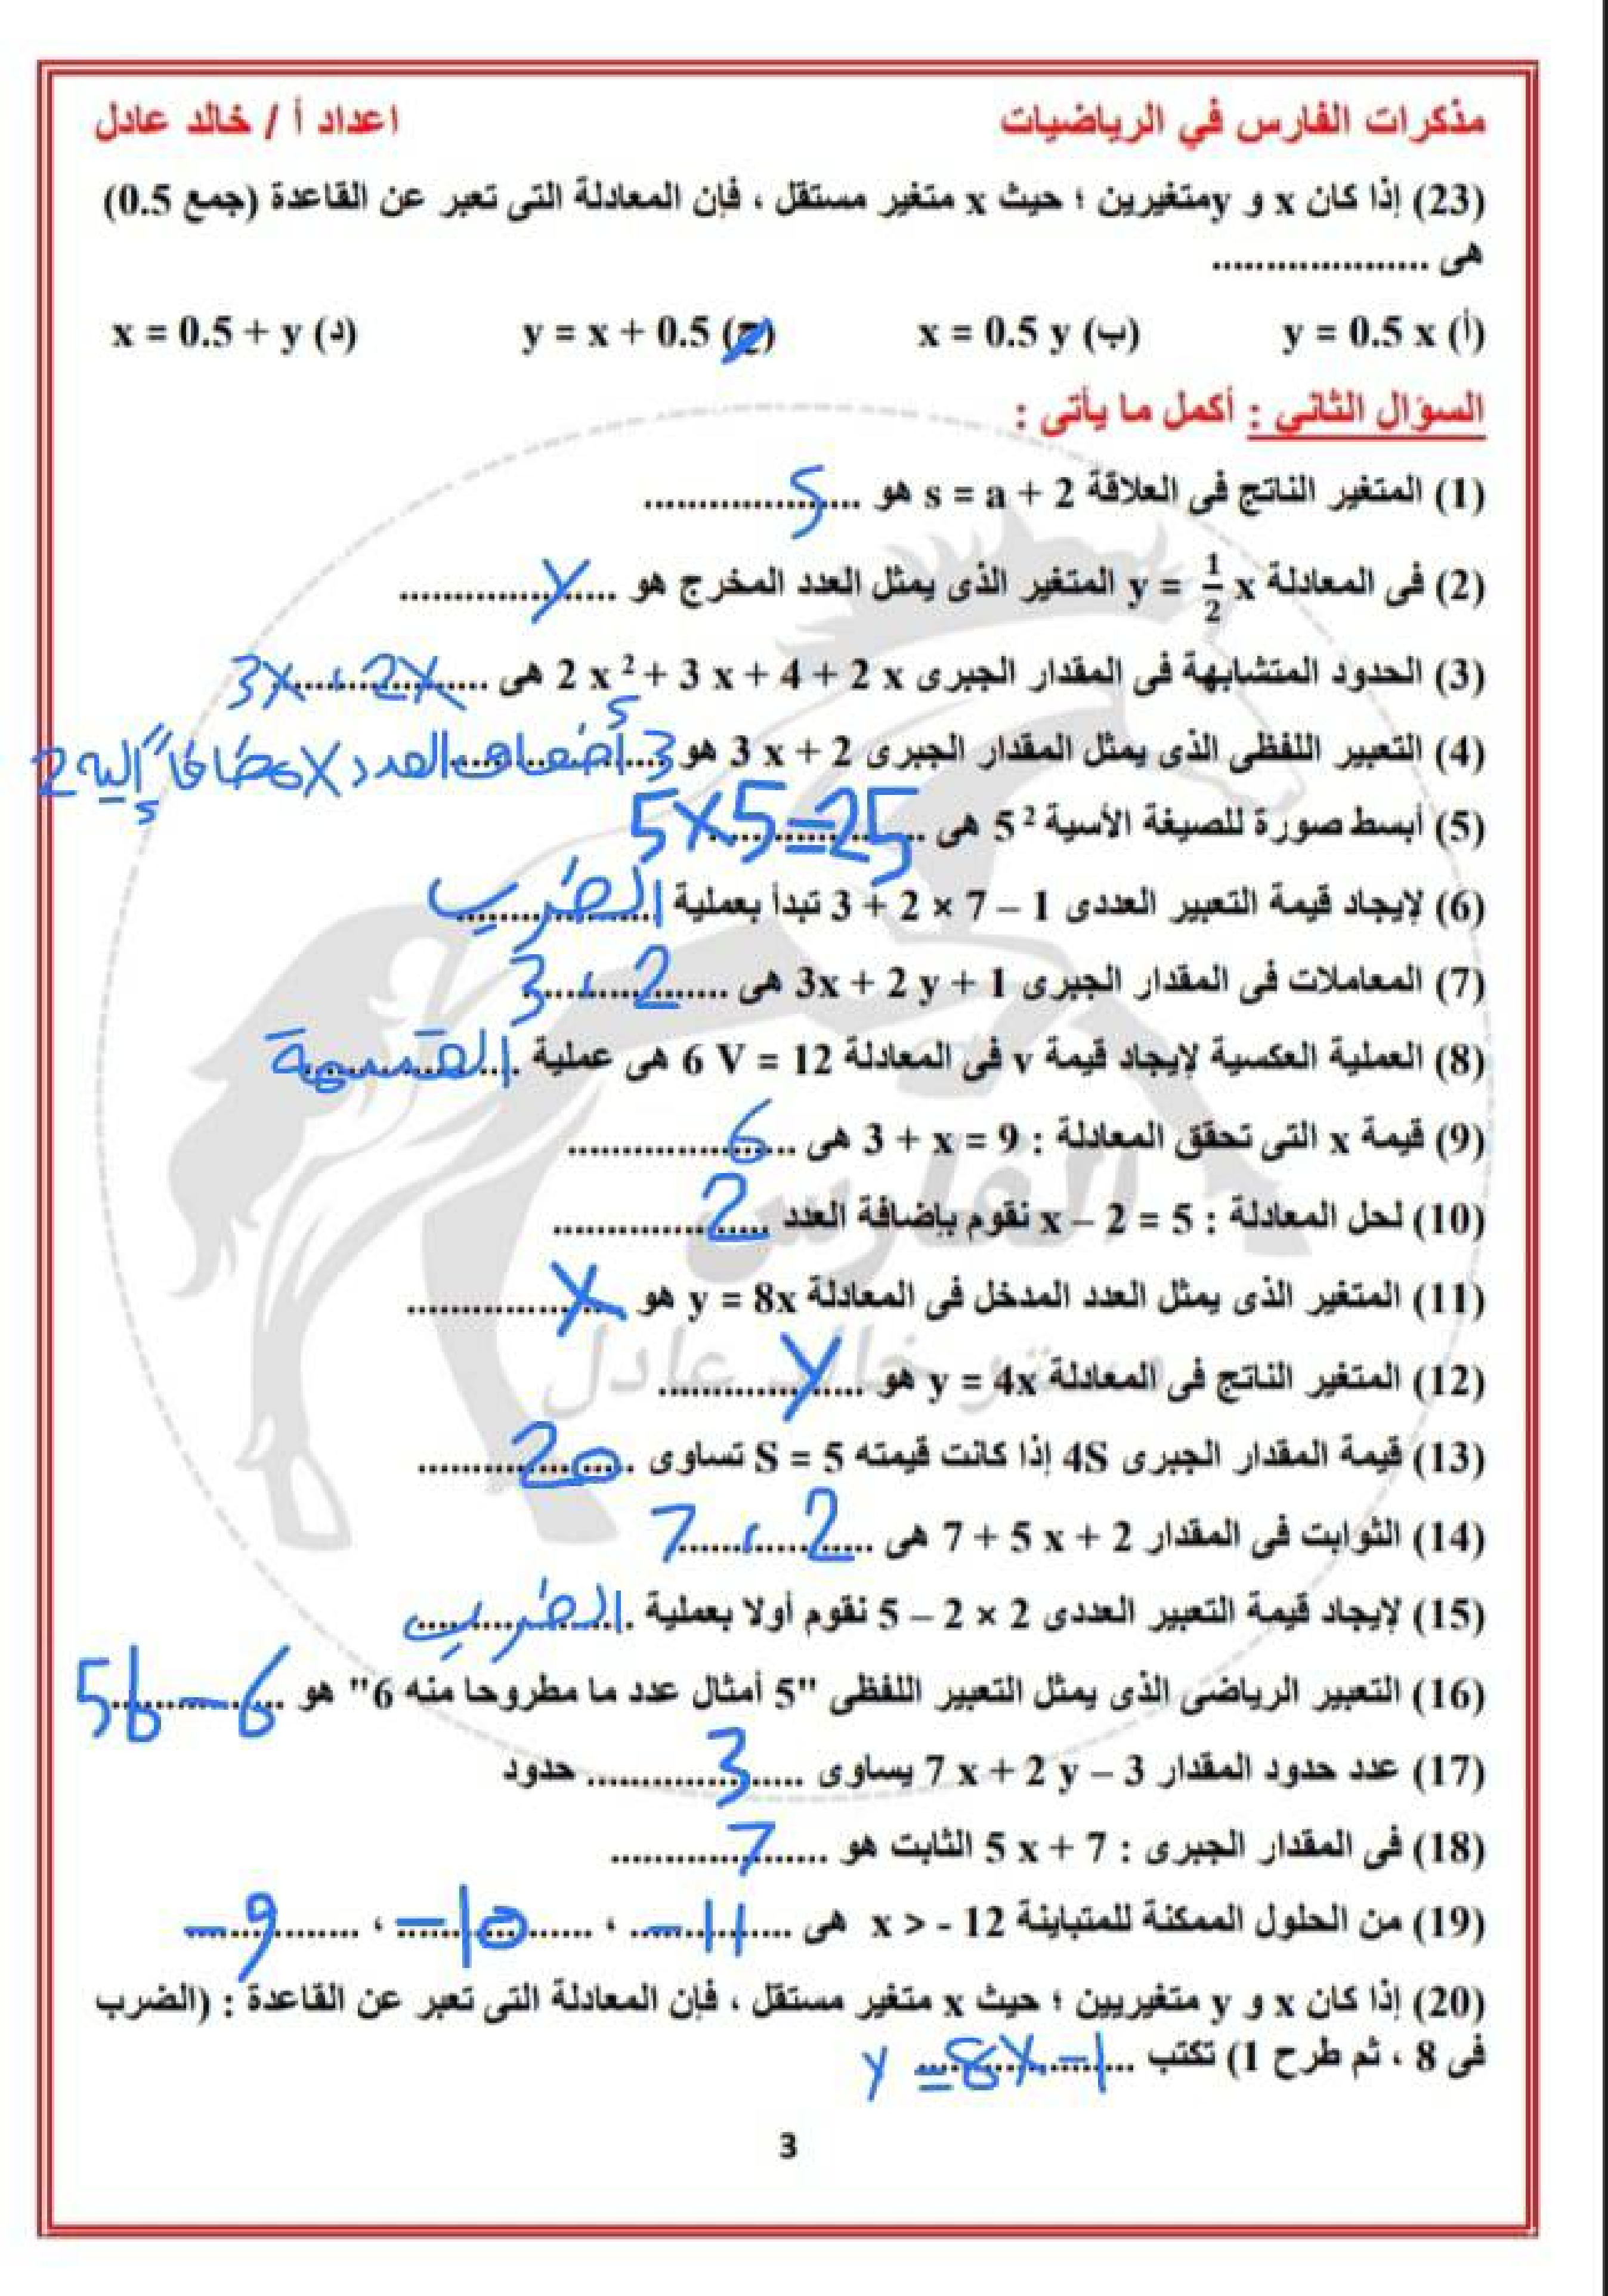 مذكرات الفارس في الرياضيات
اعداد أ / خالد عادل
(23) إذا كان x و yمتغيرين ؛ حيث x متغير مستقل ، فإن المعادلة التى تعبر عن القاعدة (جمع 0.5)
هى ....................
(أ) y = 0.5 x (ب) x = 0.5 y (ج) y = x + 0.5 (د) x = 0.5 + y
السؤال الثاني : أكمل ما يأتى :
(1) المتغير الناتج فى العلاقة s = a + 2 هو S
(2) فى المعادلة y = 1/2 x المتغير الذى يمثل العدد المخرج هو y
(3) الحدود المتشابهة فى المقدار الجبرى 2 x ² + 3 x + 4 + 2 x هى 3x ، 2x
(4) التعبير اللفظى الذى يمثل المقدار الجبرى 3 x + 2 هو 3 أضعاف العدد x مضافاً إليه 2
(5) أبسط صورة للصيغة الأسية 5 ² هى 5×5=25
(6) لإيجاد قيمة التعبير العددى 3 + 2 × 7 – 1 تبدأ بعملية الضرب
(7) المعاملات فى المقدار الجبرى 3x + 2 y + 1 هى 3 ، 2
(8) العملية العكسية لإيجاد قيمة v فى المعادلة 6 V = 12 هى عملية القسمة
(9) قيمة x التى تحقق المعادلة : 3 + x = 9 هى 6
(10) لحل المعادلة : x – 2 = 5 نقوم بإضافة العدد 2
(11) المتغير الذى يمثل العدد المدخل فى المعادلة y = 8x هو x
(12) المتغير الناتج فى المعادلة y = 4x هو y
(13) قيمة المقدار الجبرى 4S إذا كانت قيمته S = 5 تساوى 20
(14) الثوابت فى المقدار 7 + 5 x + 2 هى 7 ، 2
(15) لإيجاد قيمة التعبير العددى 5 – 2 × 2 نقوم أولا بعملية الضرب
(16) التعبير الرياضى الذى يمثل التعبير اللفظى "5 أمثال عدد ما مطروحا منه 6" هو 5b – 6
(17) عدد حدود المقدار 7 x + 2 y – 3 يساوى 3 حدود
(18) فى المقدار الجبرى : 5 x + 7 الثابت هو 7
(19) من الحلول الممكنة للمتباينة x > - 12 هى –11 ، –10 ، –9
(20) إذا كان x و y متغيريين ؛ حيث x متغير مستقل ، فإن المعادلة التى تعبر عن القاعدة : (الضرب
فى 8 ، ثم طرح 1) تكتب y = 8x – 1
3
الفارس